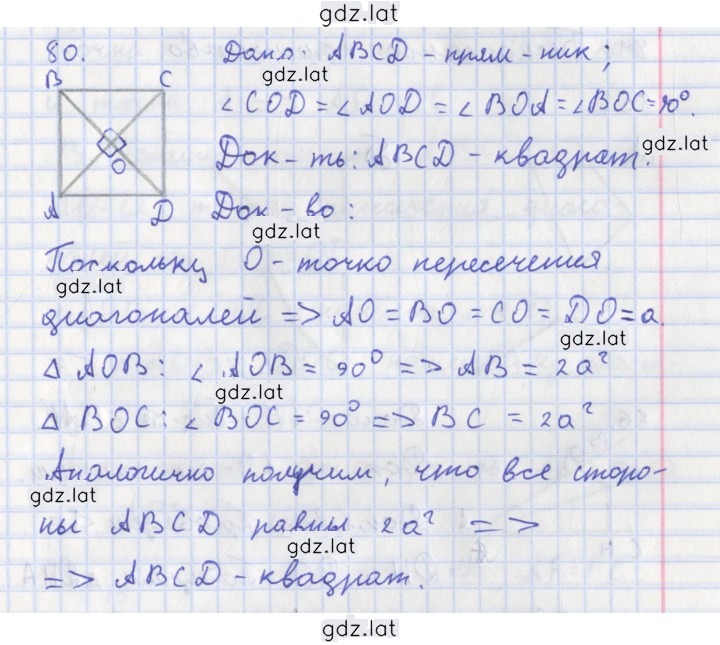 gdz.lat
80. Дано: ABCD - прям-ник;
gdz.lat
B C
∠COD = ∠AOD = ∠BOA = ∠BOC = 90°.
gdz.lat
O
Док-ть: ABCD - квадрат.
A D
Док-во:
gdz.lat
Поскольку O - точко пересечения
gdz.lat
диагоналей => AO = BO = CO = DO = a.
gdz.lat
△ AOB: ∠ AOB = 90° => AB = 2a²
gdz.lat
△ BOC: ∠ BOC = 90° => BC = 2a²
Аналогично получим, что все сторо-
gdz.lat
ны ABCD равны 2a² =>
gdz.lat
=> ABCD - квадрат.
gdz.lat